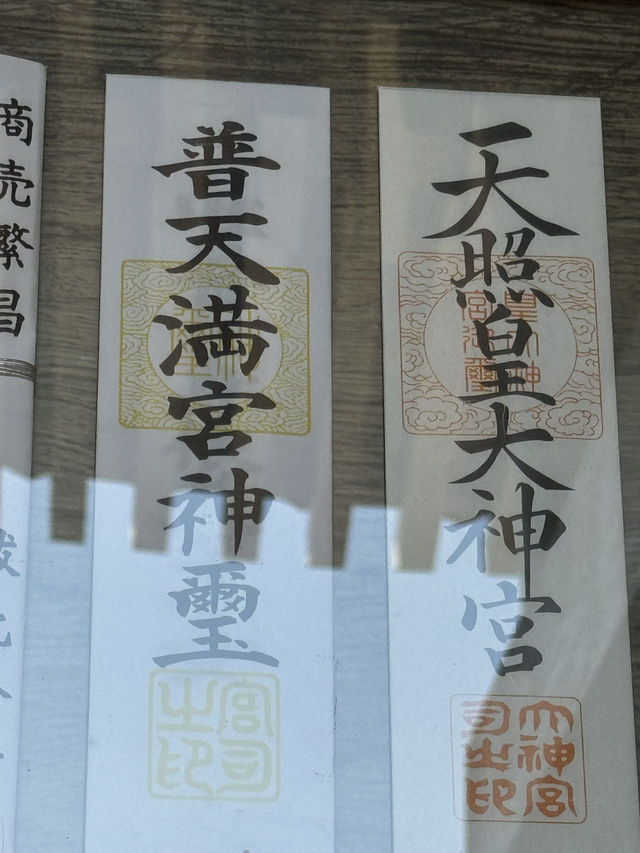 天照皇大神宮
大神宮
司之印
普天満宮神璽
宮司
之印
商売繁昌